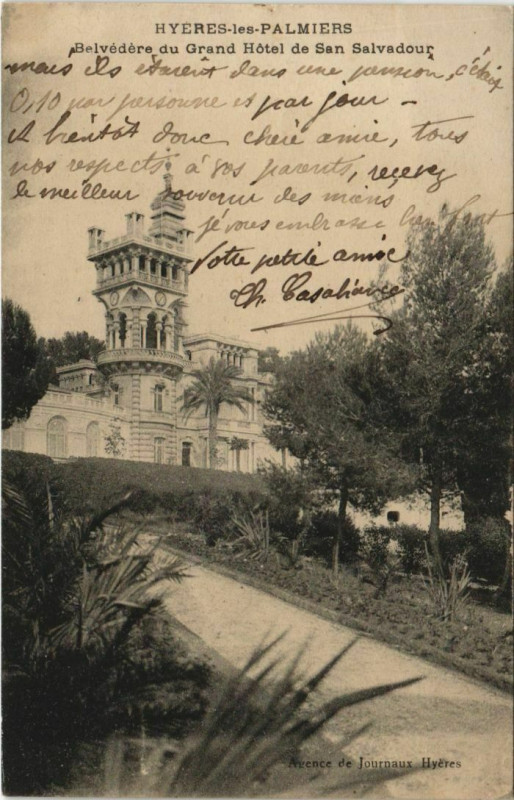 HYÈRES-les-PALMIERS
Belvédère du Grand Hôtel de San Salvadour
mais ils étaient dans une pension, c'était
0,10 par personne et par jour –
A bientôt donc chère amie, tous
nos respects à vos parents, recevez
le meilleur souvenir des miens
je vous embrasse bien fort
Votre petite amie
Ch.
Agence de Journaux Hyères